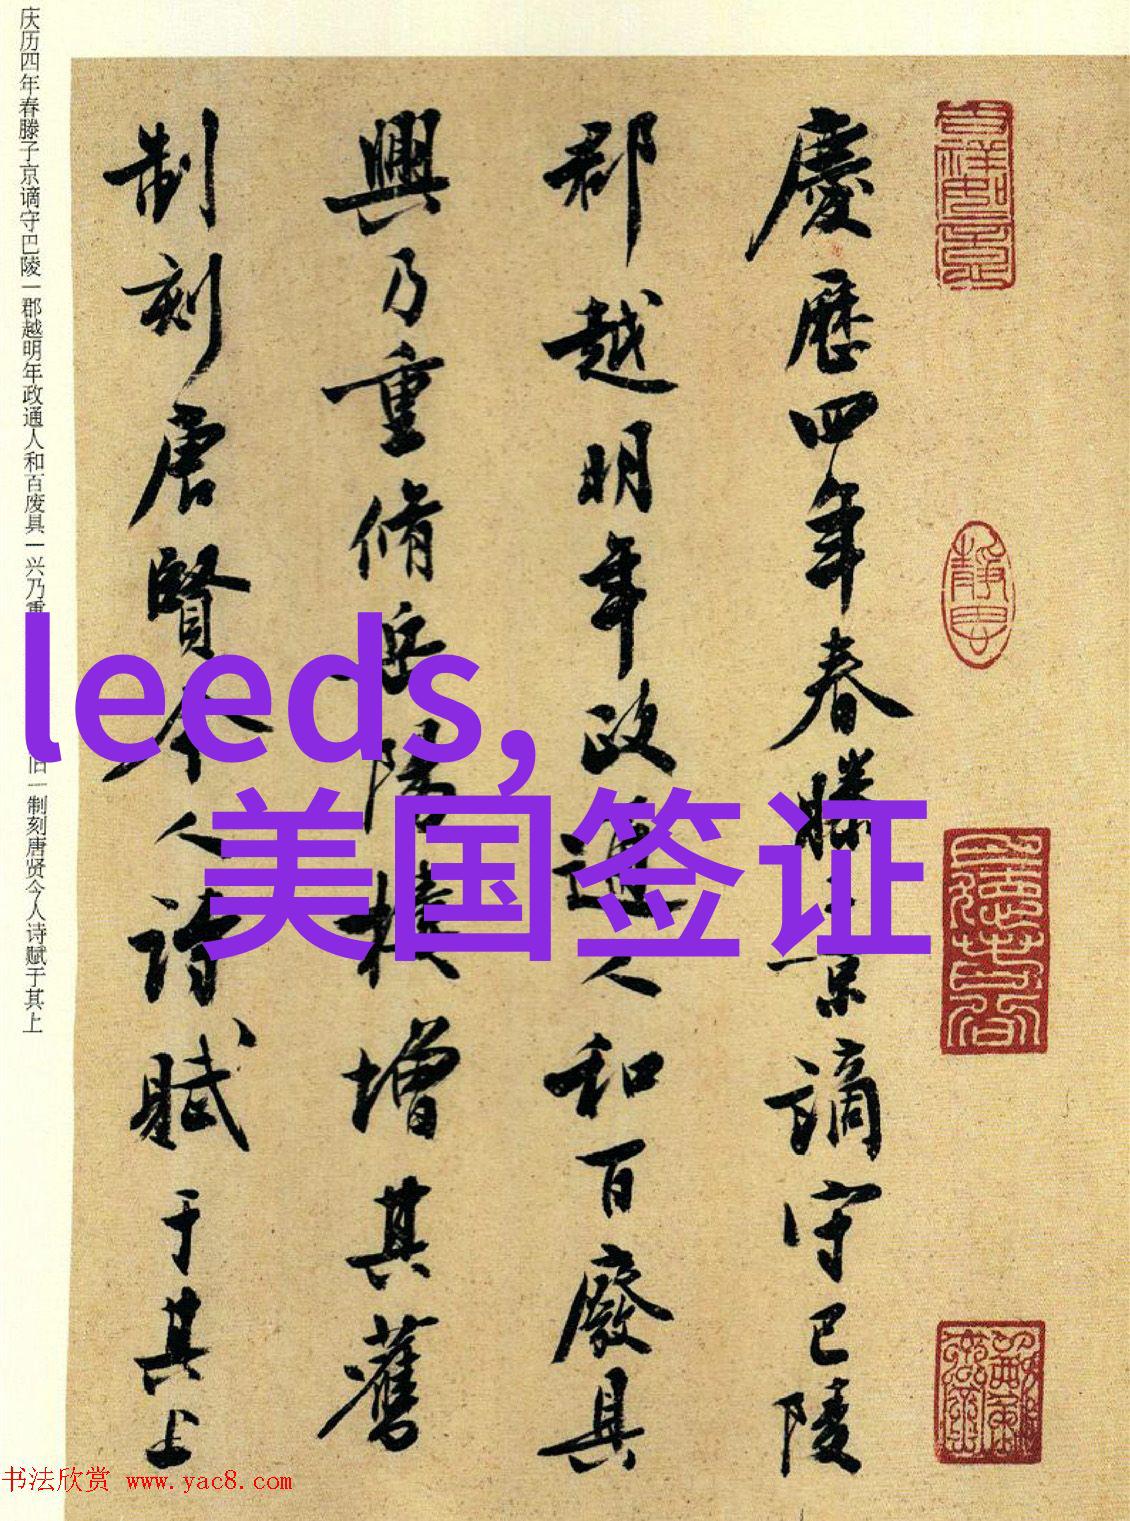 慶歷四年春滕子京謫守巴陵
郡越明年政通人和百廢具
興乃重脩岳陽樓增其舊
制刻唐賢今人詩賦于其上
庆历四年春滕子京谪守巴陵一郡越明年政通人和百废具一兴乃重
旧一制刻唐贤今人诗赋于其上
leeds,
美国签证
书法欣赏 www.yac8.com